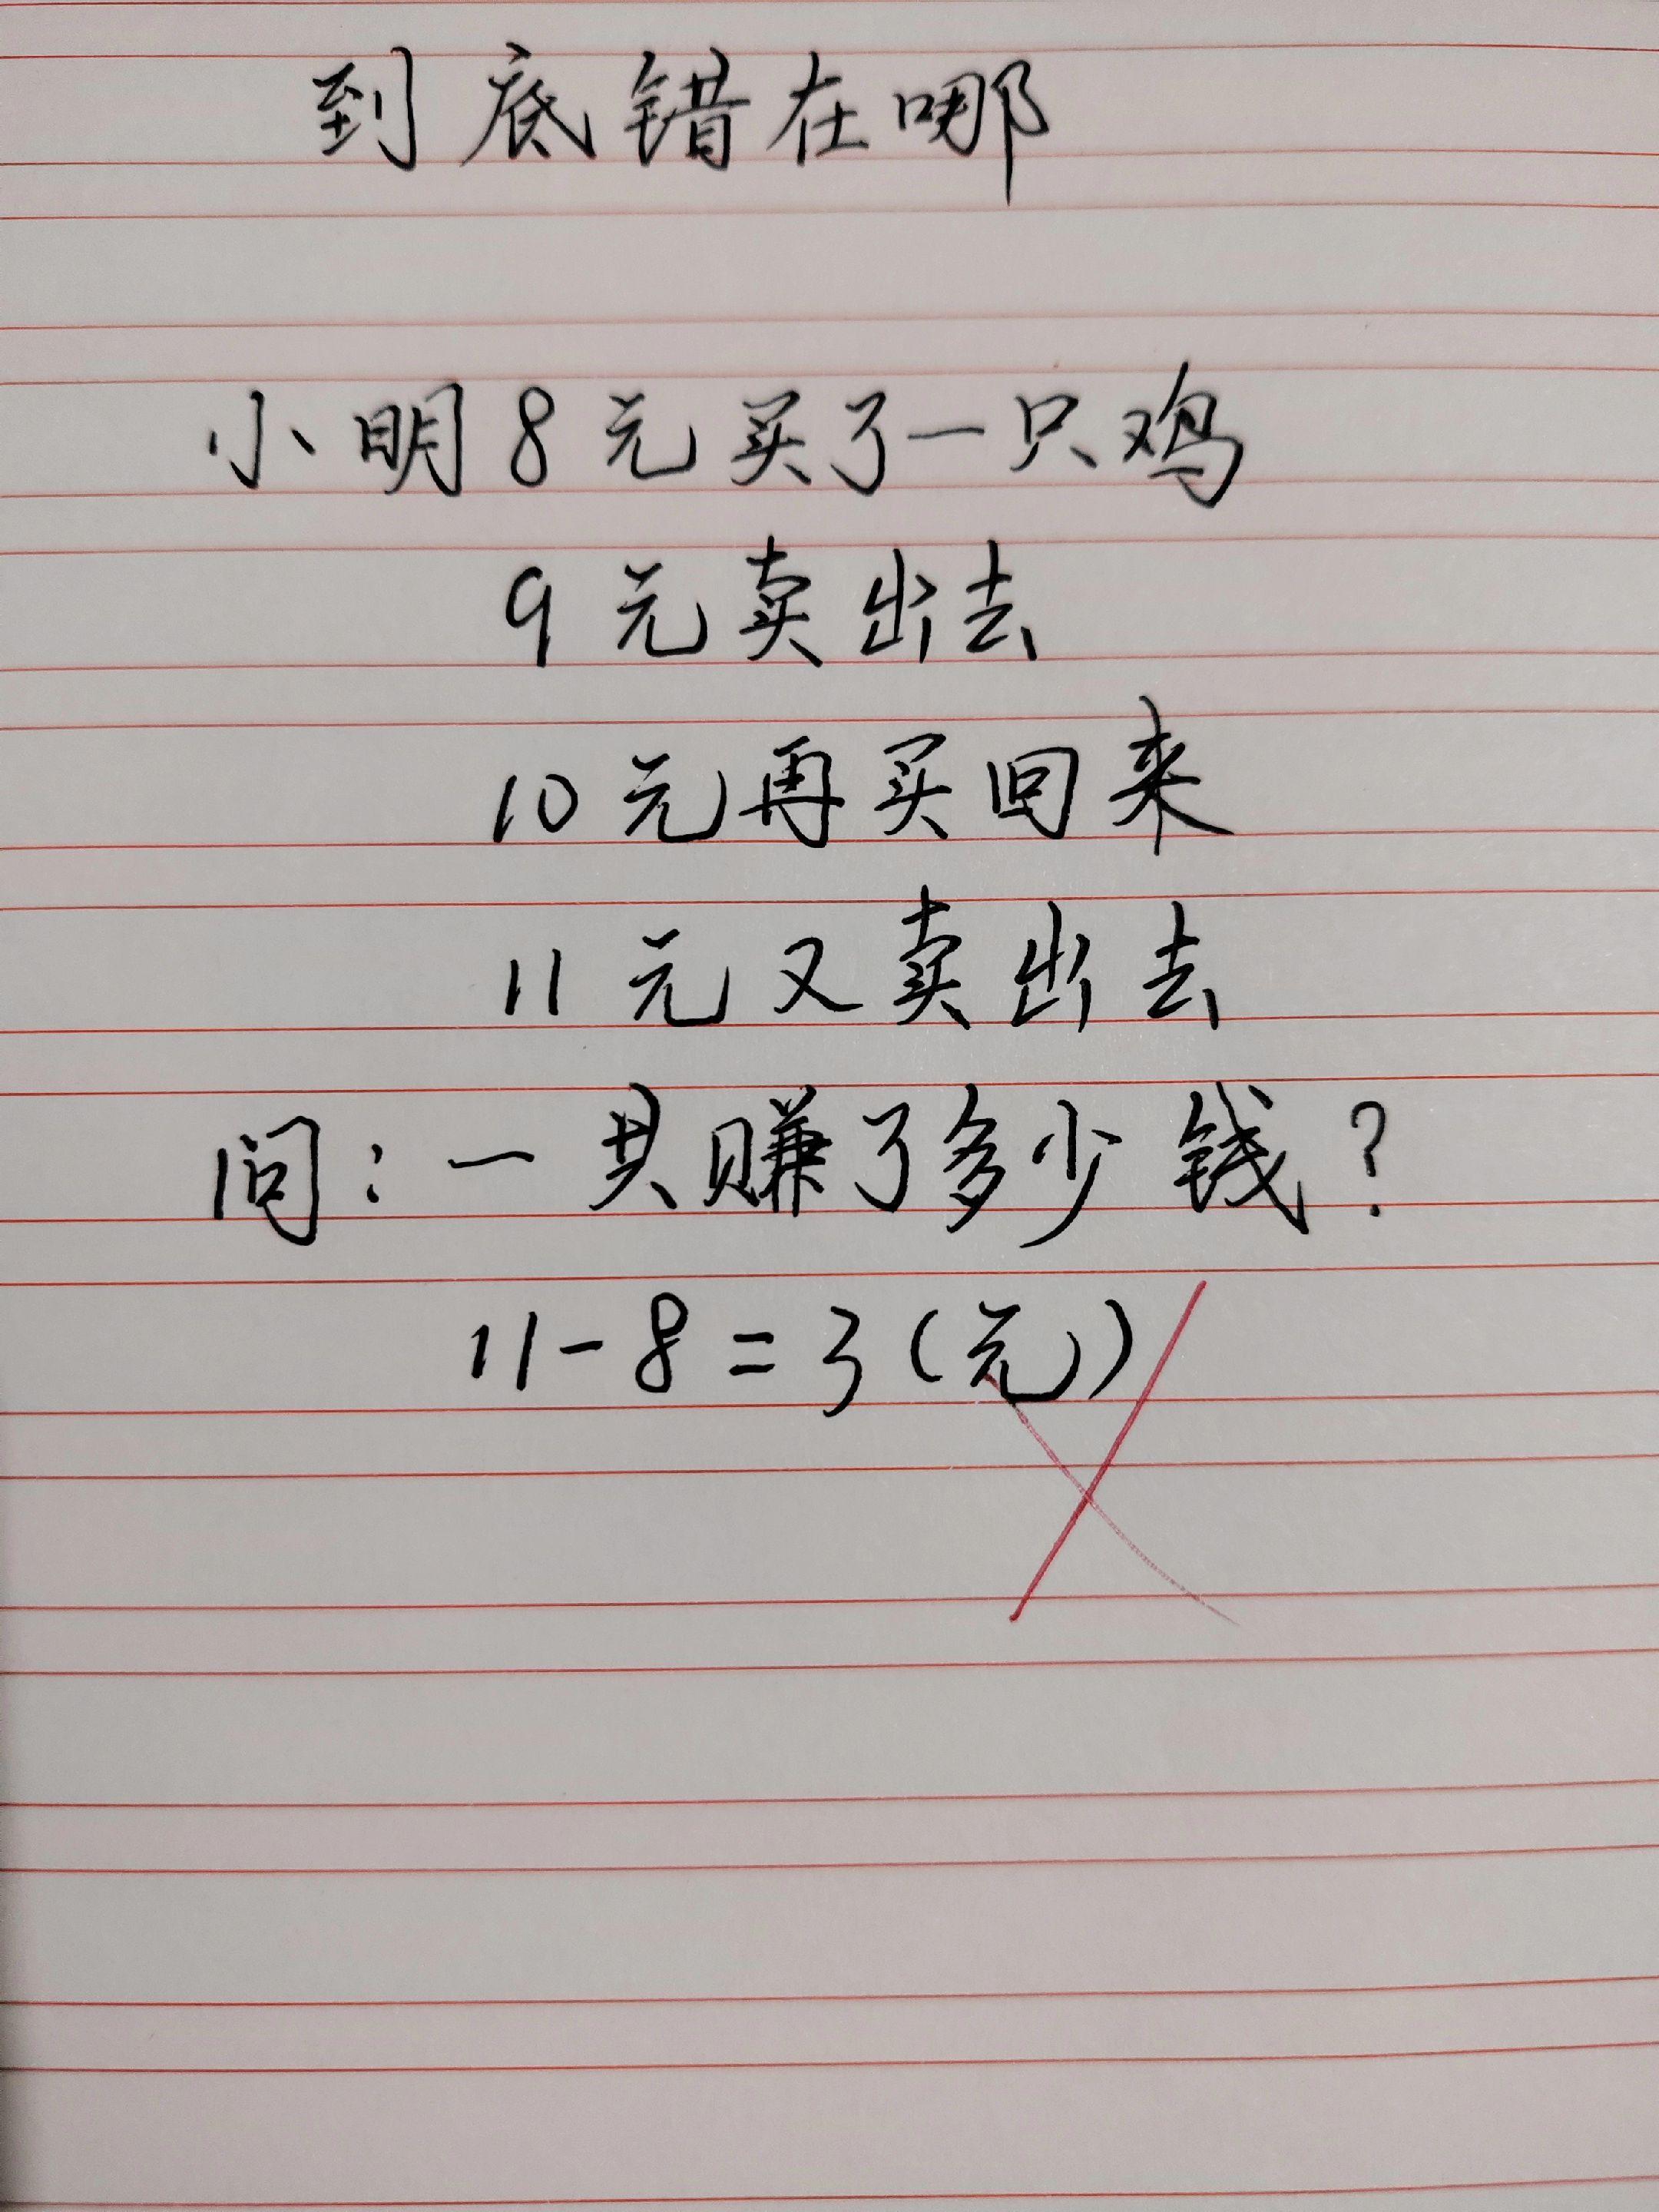 到底错在哪
小明8元买了一只鸡
9元卖出去
10元再买回来
11元又卖出去
问:一共赚了多少钱?
11-8=3(元)